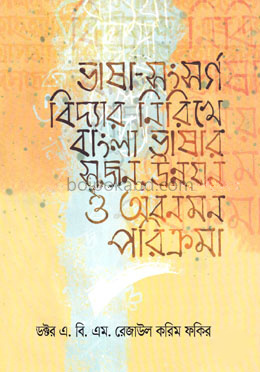 ভাষা-সংসর্গ
বিদ্যার নিরিখে
বাংলা ভাষার
সৃজন উন্নয়ন
ও অবনমন
পরিক্রমা
ডক্টর এ. বি. এম. রেজাউল করিম ফকির